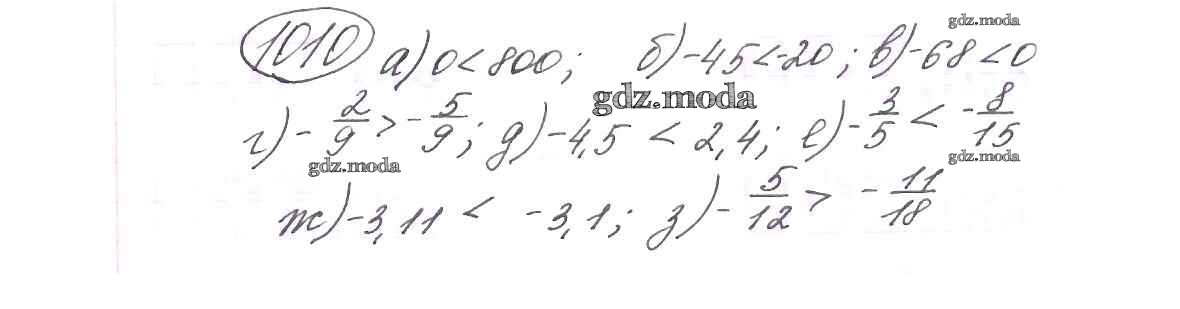 gdz.moda
1010 а) 0 < 800; б) -45 < -20; в) -68 < 0
gdz.moda
г) - 2/9 > - 5/9; д) -4,5 < 2,4; е) - 3/5 < - 8/15
gdz.moda gdz.moda
ж) -3,11 < -3,1; з) - 5/12 > - 11/18